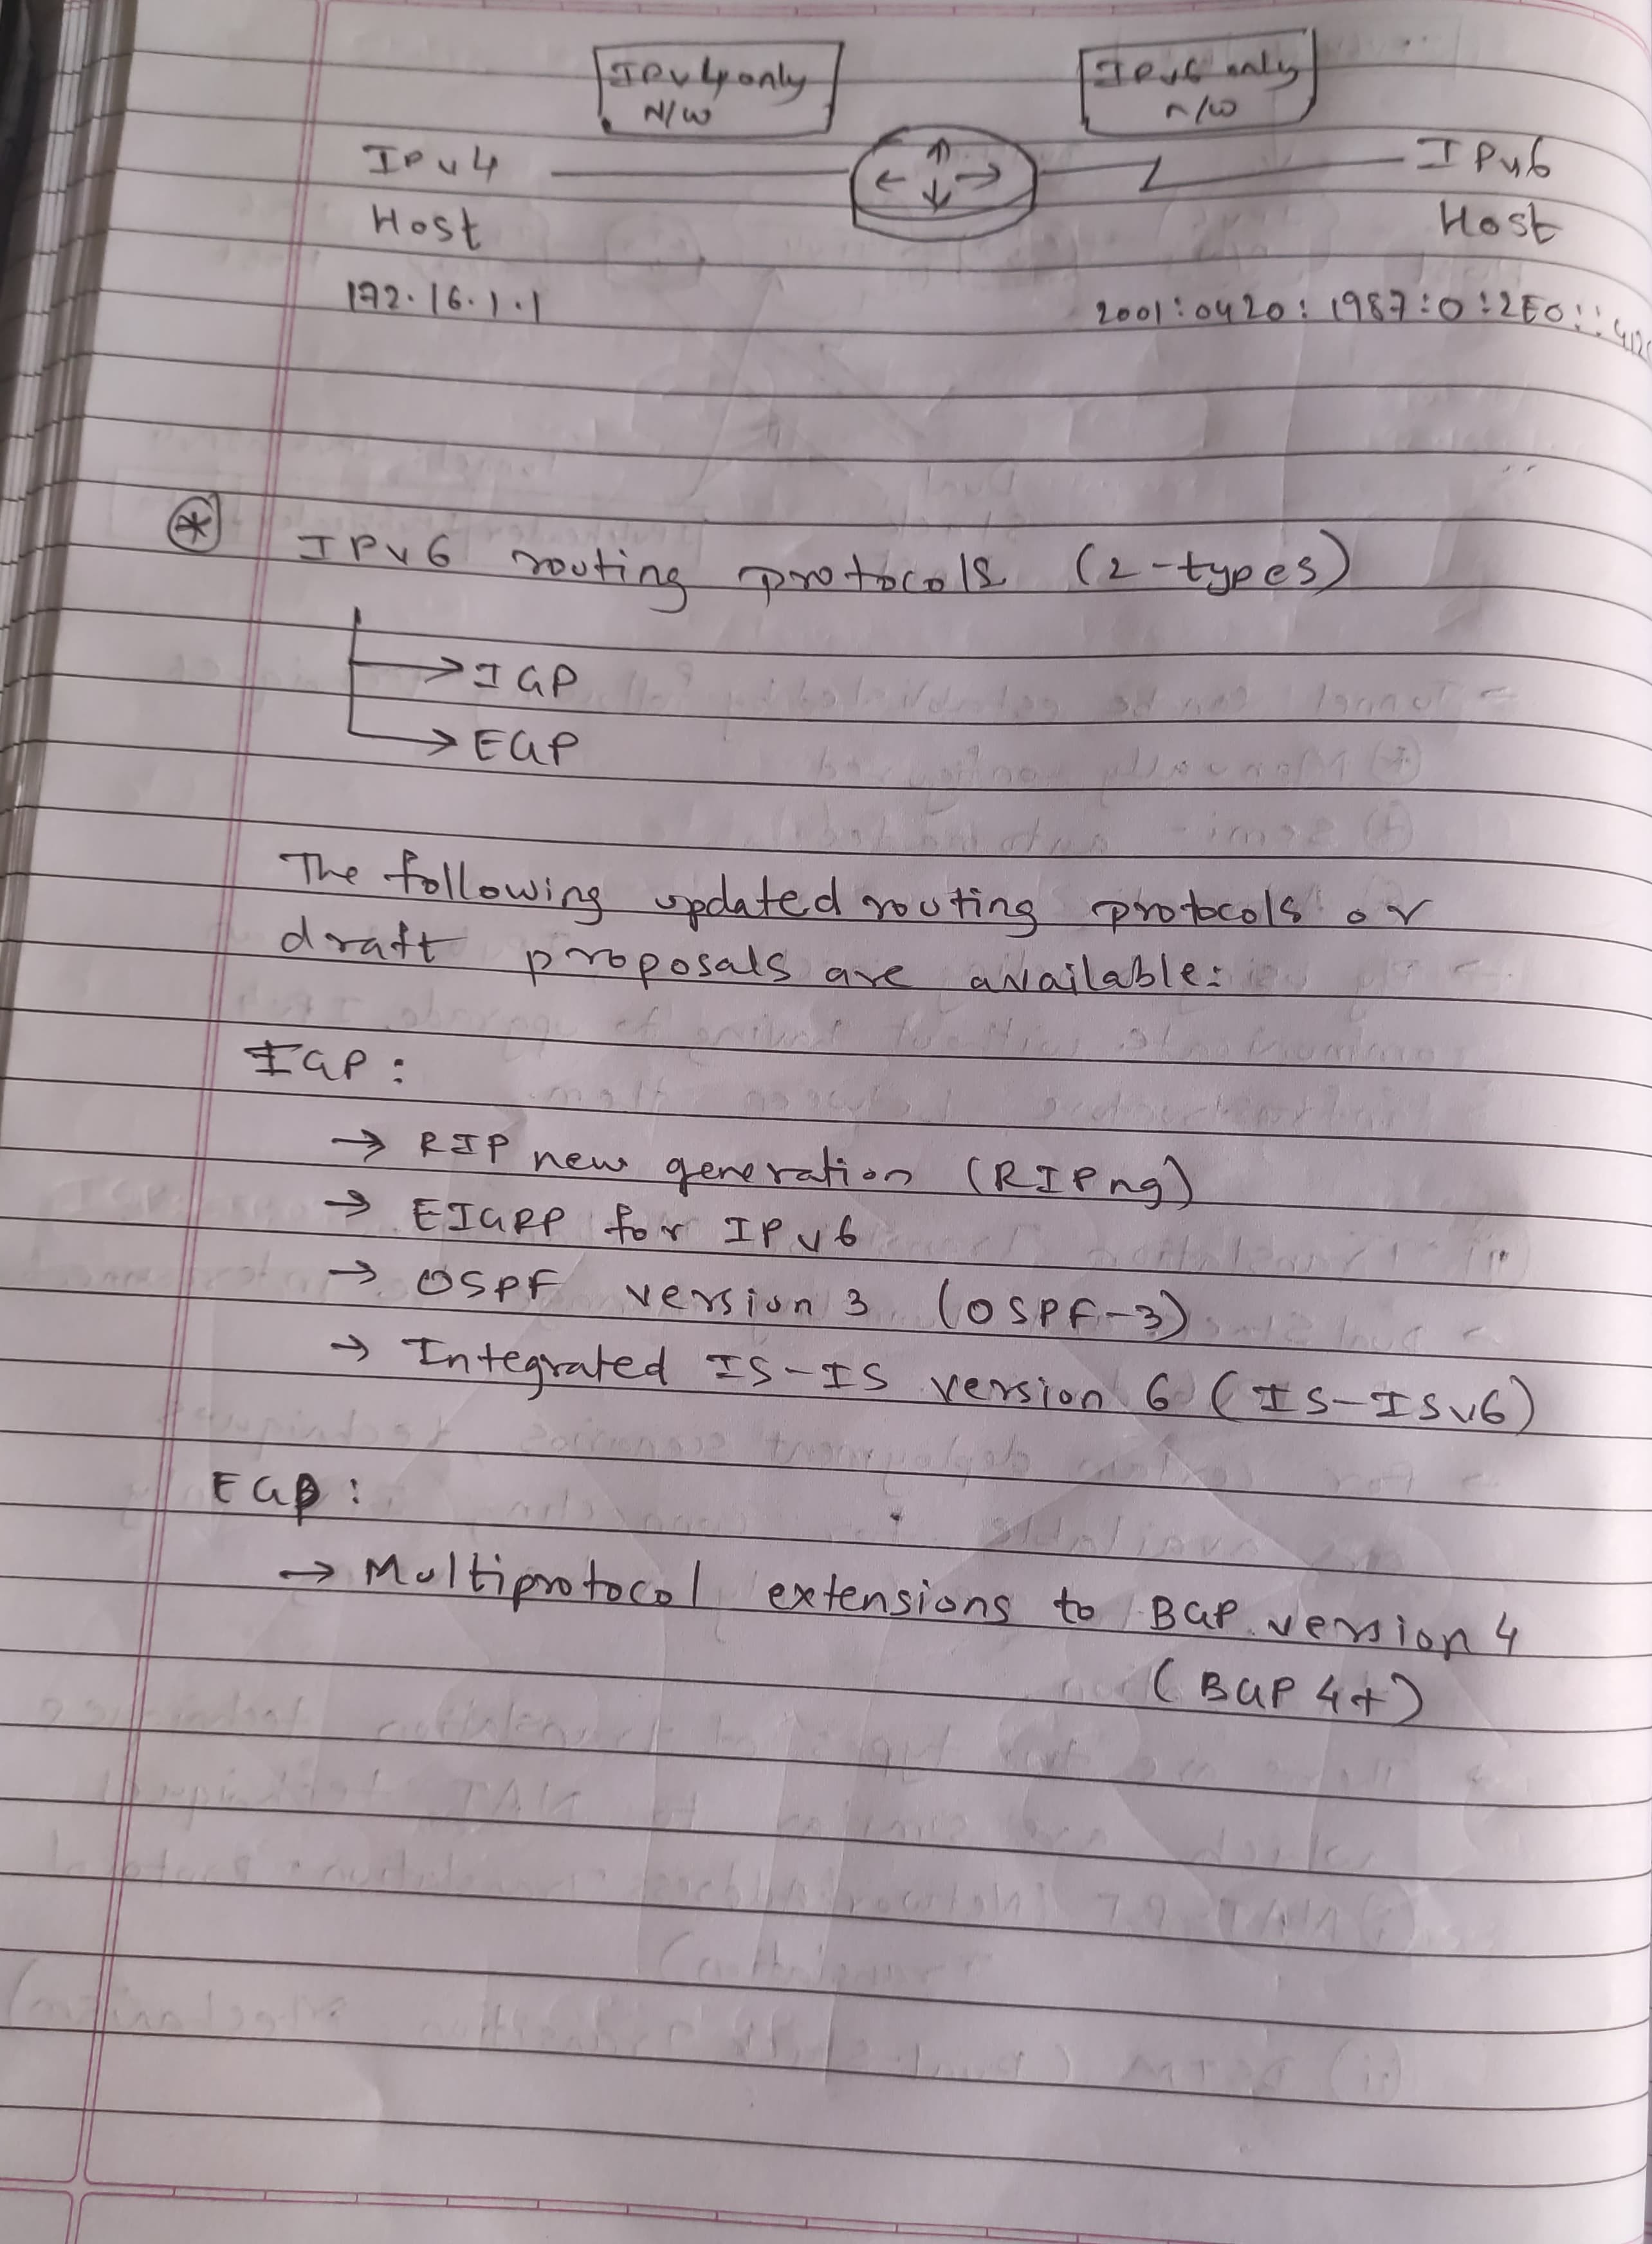 IPv4 only
N/W
IPv6 only
n/w
IPv4
Host
IPv6
Host
172.16.1.1
2001:0420:1987:0:2E0::
IPv6 routing protocols (2-types)
→ IGP
→ EGP
The following updated routing protocols or
draft proposals are available:
IGP:
→ RIP new generation (RIPng)
→ EIGRP for IPv6
→ OSPF version 3 (OSPF-3)
→ Integrated IS-IS version 6 (IS-ISv6)
EGP:
→ Multiprotocol extensions to BGP version 4
(BGP 4+)